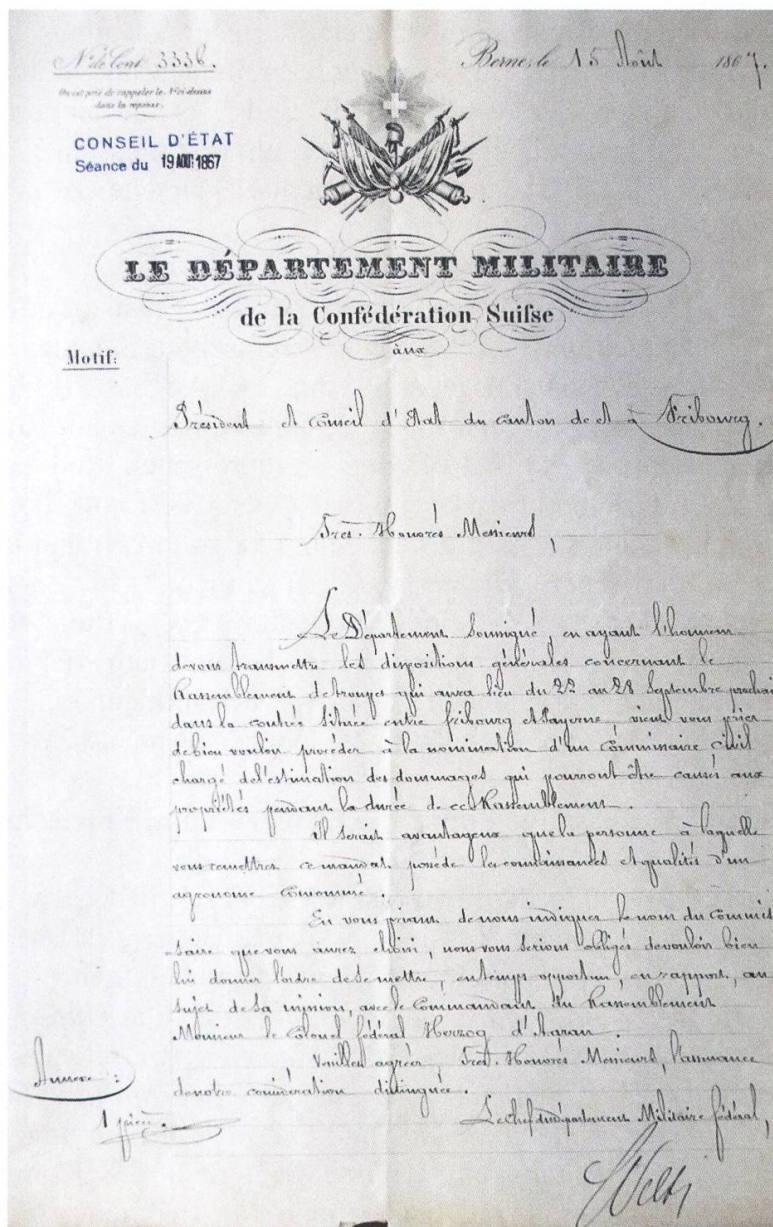 No de Cont. 3336.
Berne, le 15 Août 1867.
On est prié de rappeler le No ci-dessus
dans la réponse.
CONSEIL D'ÉTAT
Séance du 19 AOUT 1867
LE DÉPARTEMENT MILITAIRE
de la Confédération Suiſse
aux
Motif:
Président et Conseil d'Etat du canton de et à Fribourg.
Très-Honorés Messieurs,
Le Département soussigné, en ayant l'honneur
de vous transmettre les dispositions générales concernant le
Rassemblement de troupes qui aura lieu du 22 au 28 Septembre prochain
dans la contrée située entre Fribourg et Payerne, vient vous prier
de bien vouloir procéder à la nomination d'un Commissaire civil
chargé de l'estimation des dommages qui pourront être causés aux
propriétés pendant la durée de ce Rassemblement.
Il serait avantageux que la personne à laquelle
vous remettrez ce mandat possède les connaissances et qualités d'un
agronome consommé.
En vous priant de nous indiquer le nom du Commis
saire que vous aurez choisi, nous vous serions obligés de vouloir bien
lui donner l'ordre de se mettre, en temps opportun, en rapport, au
sujet de sa mission, avec le Commandant du Rassemblement
Monsieur le Colonel fédéral Herzog d'Aarau.
Veuillez agréer, Très-Honorés Messieurs, l'assurance
de notre considération distinguée.
Annexe:
1 pièce.
Le chef du département Militaire fédéral,
Welti